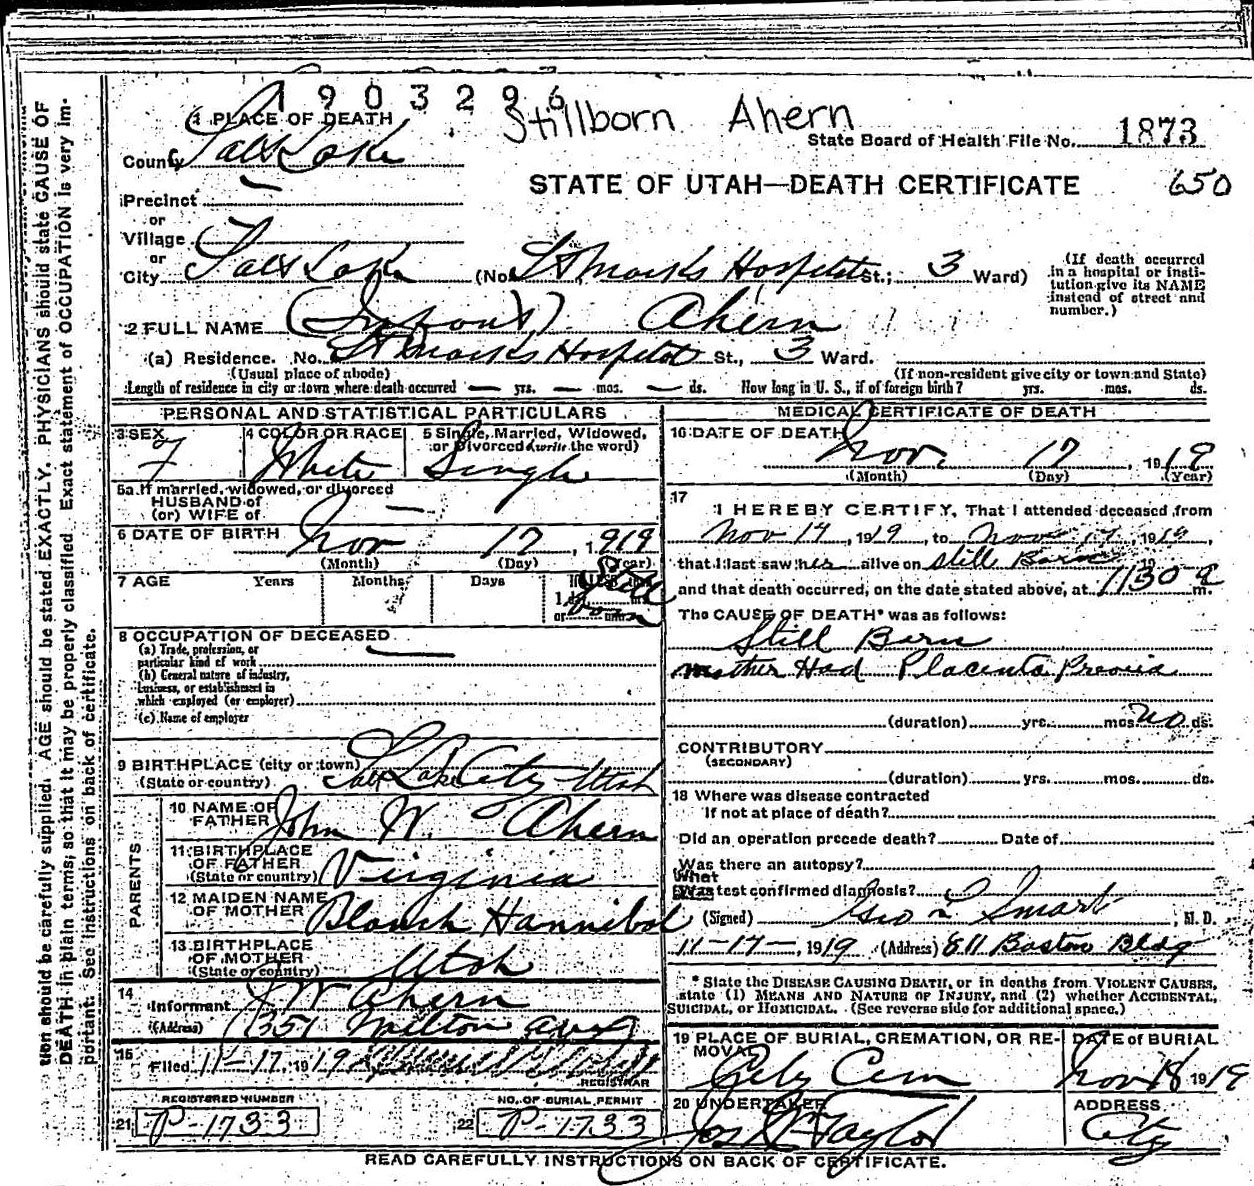 1903296
Stillborn Ahern
1 PLACE OF DEATH
State Board of Health File No. 1873
County Salt Lake
STATE OF UTAH—DEATH CERTIFICATE 650
Precinct —
or
Village
or
City Salt Lake (No. St Marks Hospital St.; 3 Ward)
(If death occurred in a hospital or insti-
tution give its NAME
instead of street and
number.)
2 FULL NAME (Infant) Ahern
(a) Residence. No. St Marks Hospital St., 3 Ward.
(Usual place of abode) (If non-resident give city or town and State)
Length of residence in city or town where death occurred — yrs. — mos. — ds. How long in U. S., if of foreign birth? yrs. mos. ds.
PERSONAL AND STATISTICAL PARTICULARS
3 SEX F
4 COLOR OR RACE White
5 Single, Married, Widowed, or Divorced (write the word) Single
5a If married, widowed, or divorced
HUSBAND of
(or) WIFE of —
6 DATE OF BIRTH Nov 17, 1919
(Month) (Day) (Year)
7 AGE Years Months Days
Still born
8 OCCUPATION OF DECEASED —
(a) Trade, profession, or
particular kind of work
(b) General nature of industry,
business, or establishment in
which employed (or employer)
(c) Name of employer
9 BIRTHPLACE (city or town) Salt Lake City Utah
(State or country)
PARENTS
10 NAME OF FATHER John W. Ahern
11 BIRTHPLACE OF FATHER Virginia
(State or country)
12 MAIDEN NAME OF MOTHER Blanch Hannibal
13 BIRTHPLACE OF MOTHER Utah
(State or country)
14
Informant J W Ahern
(Address) 1351 Milton Ave
15
Filed 11-17, 1919
REGISTRAR
REGISTERED NUMBER
21 P-1733
NO. OF BURIAL PERMIT
22 P-1733
MEDICAL CERTIFICATE OF DEATH
16 DATE OF DEATH Nov. 17, 1919
(Month) (Day) (Year)
17
I HEREBY CERTIFY, That I attended deceased from
Nov 17, 1919, to Nov 17, 1919,
that I last saw her alive on Still Born 19
and that death occurred, on the date stated above, at 1130 a m.
The CAUSE OF DEATH* was as follows:
Still Born
Mother Had Placenta Previa
(duration) yrs. mos. no ds.
CONTRIBUTORY
(SECONDARY)
(duration) yrs. mos. ds.
18 Where was disease contracted
If not at place of death?
Did an operation precede death? Date of
Was there an autopsy?
What test confirmed diagnosis?
(Signed) Geo L Smart, M. D.
11-17-, 1919 (Address) 811 Boston Bldg
* State the DISEASE CAUSING DEATH, or in deaths from VIOLENT CAUSES,
state (1) MEANS AND NATURE OF INJURY, and (2) whether ACCIDENTAL,
SUICIDAL, or HOMICIDAL. (See reverse side for additional space.)
19 PLACE OF BURIAL, CREMATION, OR RE-
MOVAL
City Cem
DATE of BURIAL
Nov 18 1919
20 UNDERTAKER
Jos Wm Taylor
ADDRESS
City
READ CAREFULLY INSTRUCTIONS ON BACK OF CERTIFICATE.
tion should be carefully supplied. AGE should be stated EXACTLY. PHYSICIANS should state CAUSE OF
DEATH in plain terms, so that it may be properly classified. Exact statement of OCCUPATION is very im-
portant. See instructions on back of certificate.